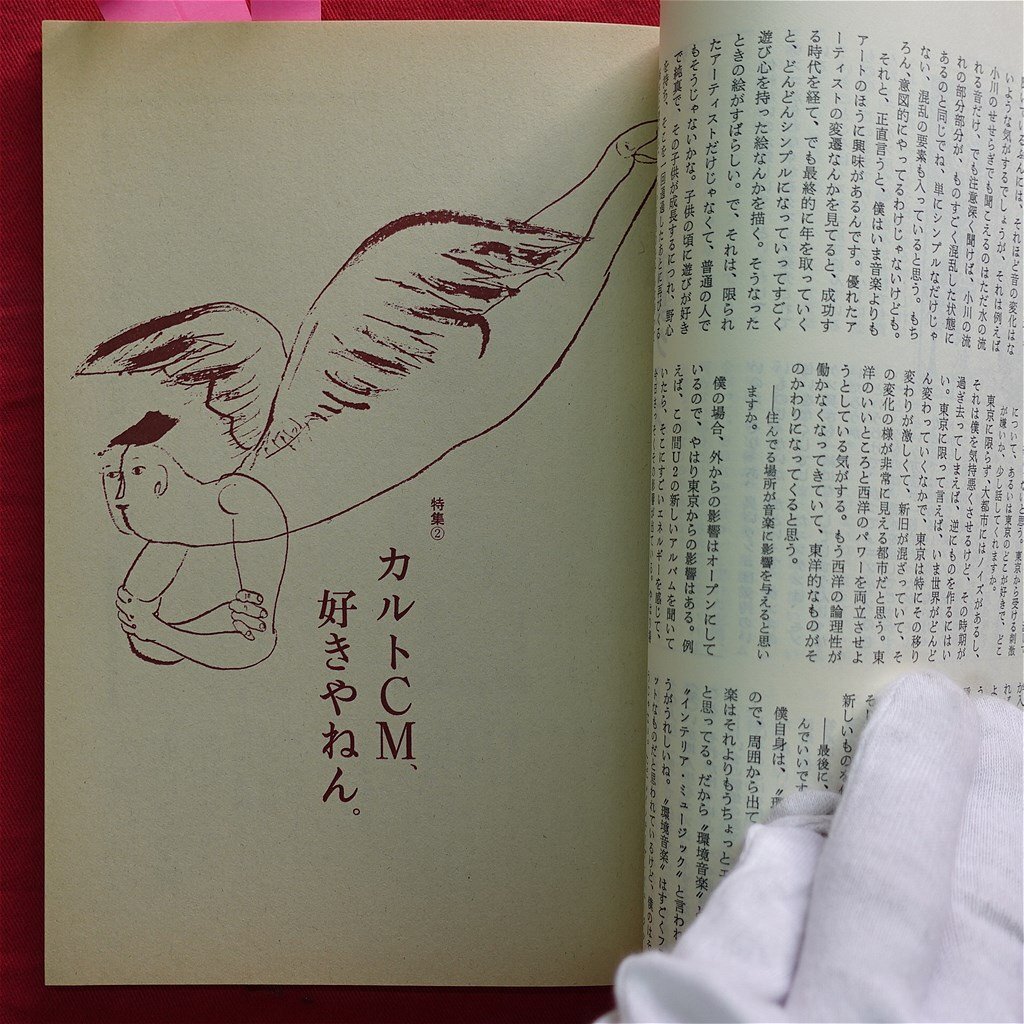 特集②
カルトCM、
好きやねん。
小川のせせらぎでも聞こえるのはただ水の流
れる音だけ、でも注意深く聞けば、小川の流
れの部分部分が、ものすごく混乱した状態に
あるのと同じでね、単にシンプルなだけじゃ
ない、混乱の要素も入っていると思う。もち
ろん、意図的にやってるわけじゃないけども。
それと、正直言うと、僕はいま音楽よりも
アートのほうに興味があるんです。優れたア
ーティストの変遷なんかを見てると、成功す
る時代を経て、でも最終的に年を取っていく
と、どんどんシンプルになっていってすごく
遊び心を持った絵なんかを描く。そうなった
ときの絵がすばらしい。で、それは、限られ
たアーティストだけじゃなくて、普通の人で
もそうじゃないかな。子供の頃に遊びが好き
で純真で、その子供が成長するにつれ、野心
が嫌いか、少し話してくれますか。
東京に限らず、大都市にはノイズがあるし、
それは僕を気持悪くさせるけど、その時期が
過ぎ去ってしまえば、逆にものを作るにはい
い。東京に限って言えば、いま世界がどんど
ん変わっていくなかで、東京は特にその移り
変わりが激しくて、新旧が混ざっていて、そ
の変化の様が非常に見える都市だと思う。東
洋のいいところと西洋のパワーを両立させよ
うとしている気がする。もう西洋の論理性が
働かなくなってきていて、東洋的なものがそ
のかわりになってくると思う。
――住んでる場所が音楽に影響を与えると思い
ますか。
僕の場合、外からの影響はオープンにして
いるので、やはり東京からの影響はある。例
えば、この間U2の新しいアルバムを聞いて
いたら、そこにすごいエネルギーを感じて、
新しいもの
――最後に、
んでいいです
僕自身は、〝環
ので、周囲から出て
楽はそれよりもうちょっとエ
と思ってる。だから〝環境音楽〟
〝インテリア・ミュージック〟と言われ
うがうれしいね。〝環境音楽〟はすごくフ
ットなものだと思われているけど、僕のは